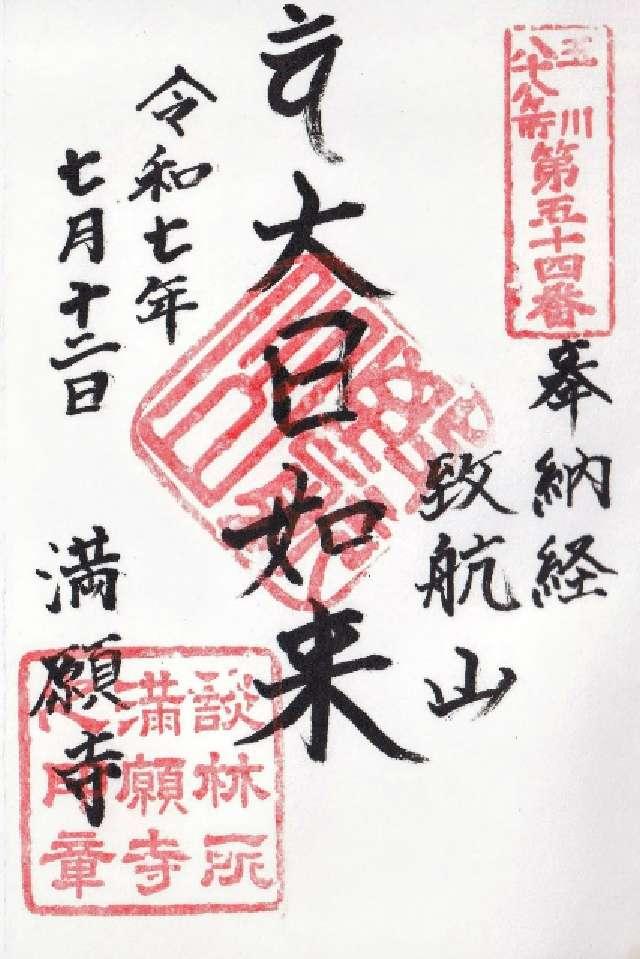 玉川
八十八ヶ所
第五十四番
奉納経
致航山
大日如来
令和七年
七月十二日
満願寺
談林所
満願寺
之用章